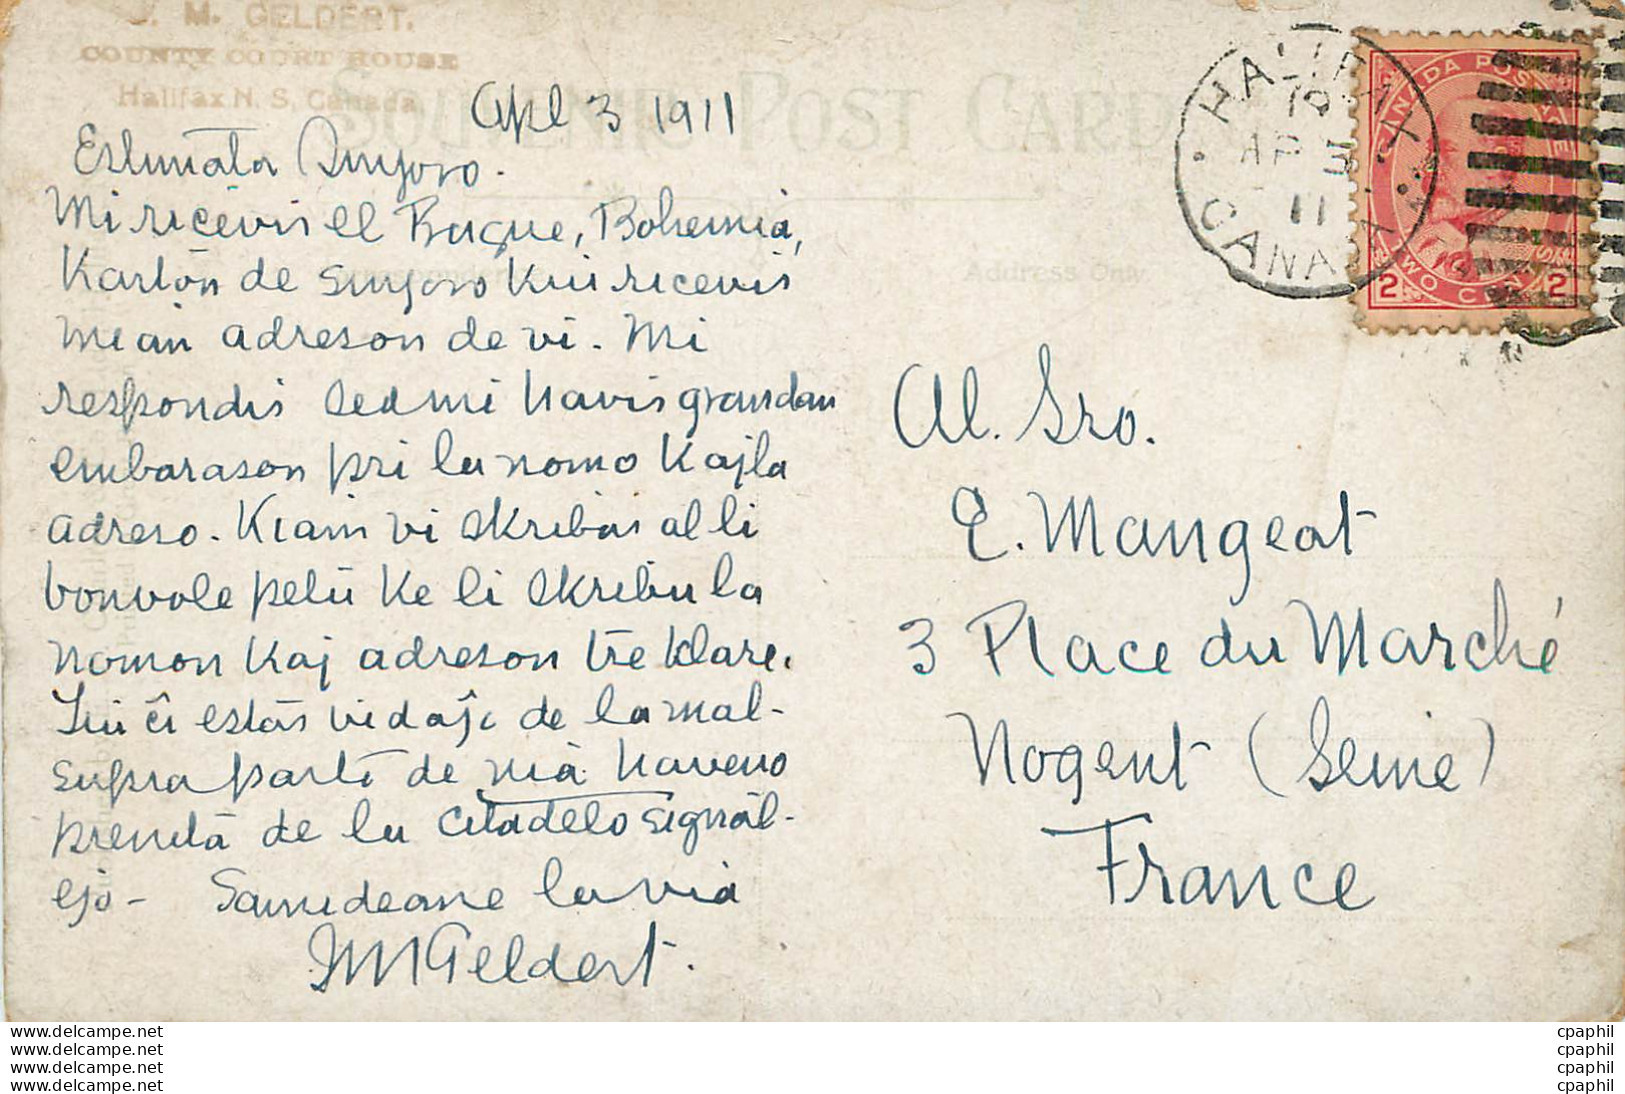 J. M. GELDERT.
COUNTY COURT HOUSE
Halifax N. S. Canada.
SOUVENIR POST CARD
Apl 3 1911
Estimata Sinjoro.
Mi ricevis el Prague, Bohemia,
Karton de sinjoro kiu ricevis
mian adreson de vi. Mi
respondis sed mi havis grandan
embarason pri la nomo Kajla
adreso. Kiam vi skribas al li
bonvole petu ke li skribu la
nomon kaj adreson tre klare.
Tiu ĉi estas vidaĵo de la mal-
supra parto de nia haveno
prenita de la citadelo signal-
ejo - Samideane la via
JM Geldert.
Correspondence
Address Only
HALIFAX
19
AP 3
11
CANADA
CANADA POSTAGE
2 TWO CENTS 2
Al. Sro.
E. Mangeot
3 Place du Marché
Nogent (Seine)
France
www.delcampe.net
www.delcampe.net
www.delcampe.net
www.delcampe.net
cpaphil
cpaphil
cpaphil
cpaphil